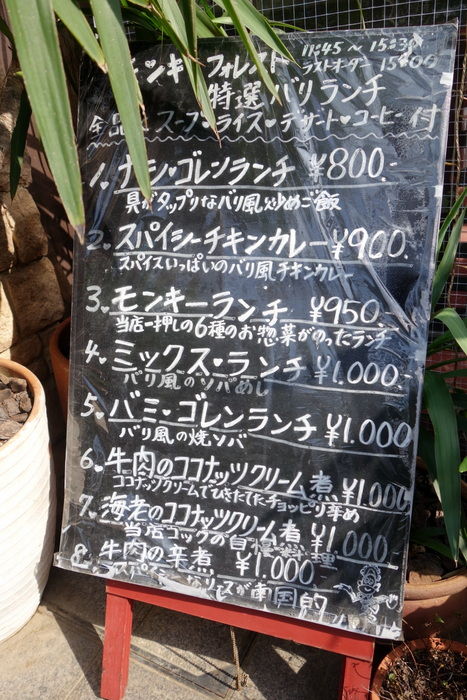 モンキーフォレスト 11:45～15:30
ラストオーダー 15:00
特選バリランチ
全品 スープ♥ライス♥デザート♥コーヒー付
1. ナシ♥ゴレンランチ ¥800.-
具がタップリなバリ風炒めご飯
2. スパイシーチキンカレー ¥900.
スパイスいっぱいのバリ風チキンカレー
3. モンキーランチ ¥950.
当店一押しの6種のお惣菜がのったランチ
4. ミックス♥ランチ ¥1.000
バリ風のソバめし
5. バミ♥ゴレンランチ ¥1.000
バリ風の焼ソバ
6. 牛肉のココナッツクリーム煮 ¥1.000
ココナッツクリームでひきたてたチョッピリ辛め
7. 海老のココナッツクリーム煮 ¥1.000
当店コックの自慢料理
8. 牛肉の辛煮 ¥1.000
スパイシーなソースが南国的